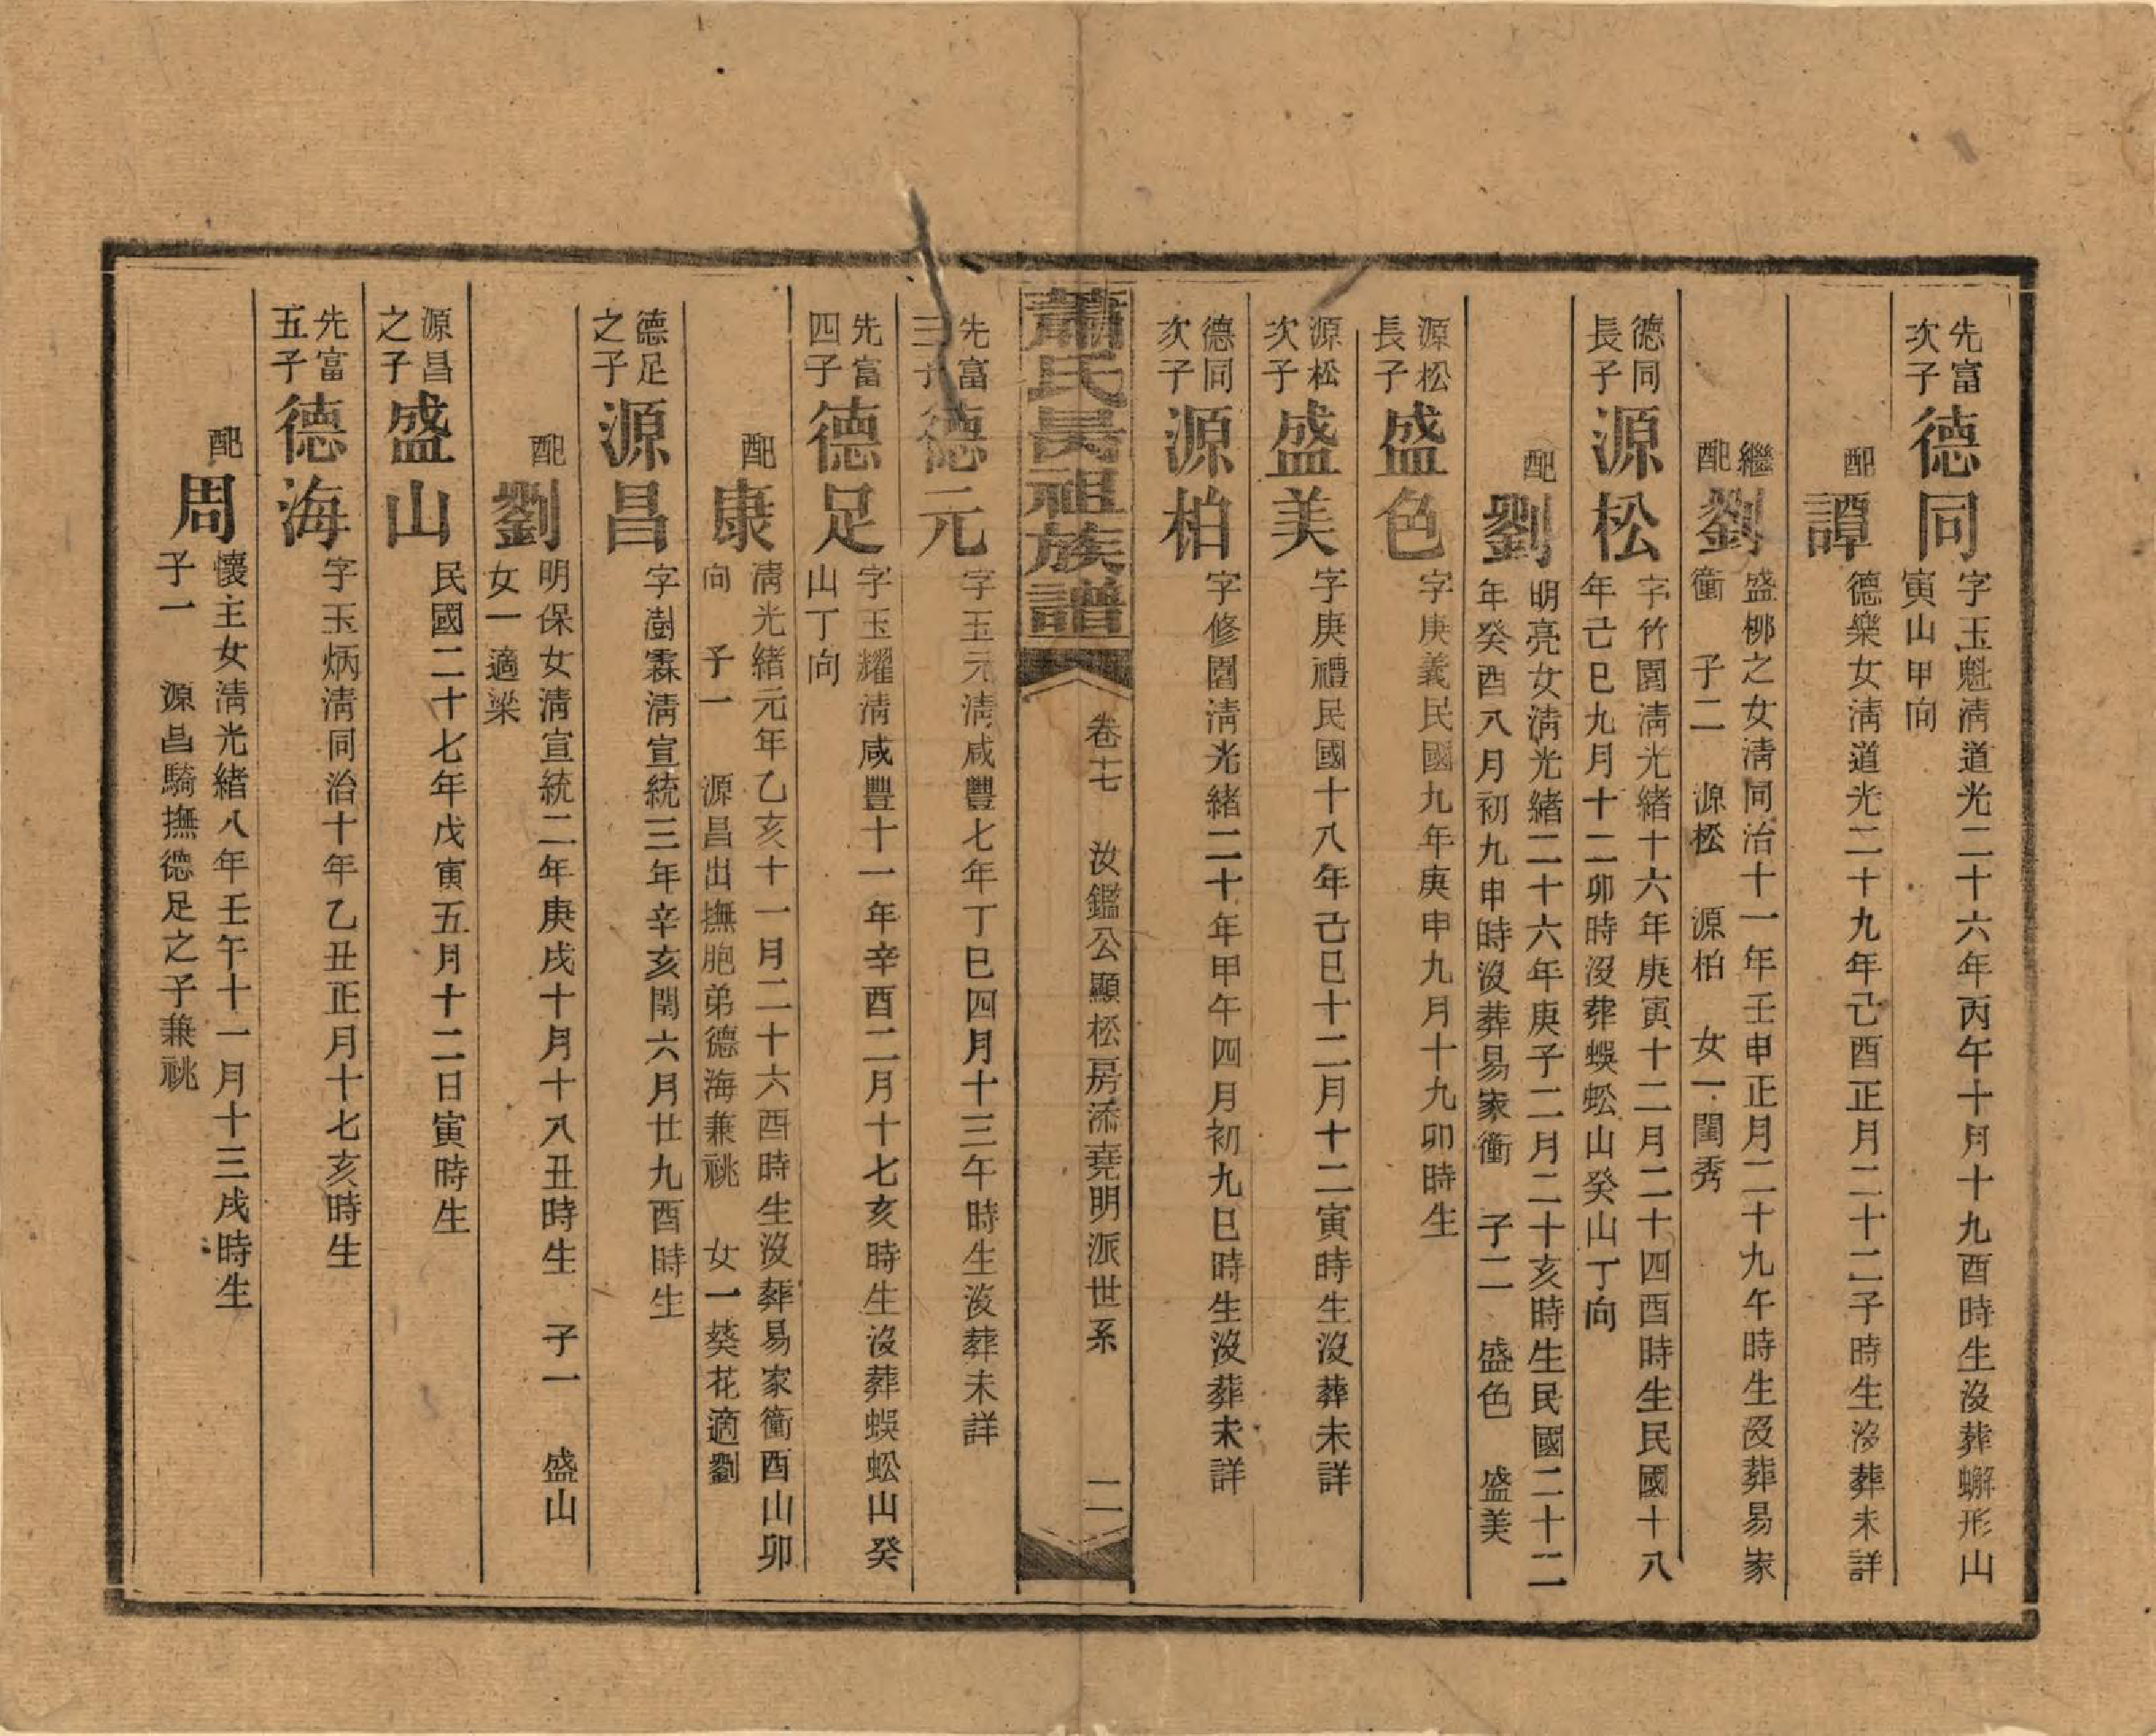 先富
次子
德同
字玉魁淸道光二十六年丙午十月十九酉時生沒葬蠏形山
寅山甲向
配
譚
德樂女淸道光二十九年己酉正月二十二子時生沒葬未詳
繼
配
劉
盛柳之女淸同治十一年壬申正月二十九午時生沒葬易家
衝 子二 源松 源柏 女一閨秀
德同
長子
源松
字竹園淸光緒十六年庚寅十二月二十四酉時生民國十八
年己巳九月十二卯時沒葬蜈蚣山癸山丁向
配
劉
明亮女淸光緒二十六年庚子二月二十亥時生民國二十二
年癸酉八月初九申時沒葬易家衝 子二 盛色 盛美
源松
長子
盛色
字庚義民國九年庚申九月十九卯時生
源松
次子
盛美
字庚禮民國十八年己巳十二月十二寅時生沒葬未詳
德同
次子
源柏
字修園淸光緒二十年甲午四月初九巳時生沒葬未詳
蕭氏昺祖族譜
卷十七 汝鑑公顯松房添堯明派世系 二
先富
三子
德元
字玉元淸咸豐七年丁巳四月十三午時生沒葬未詳
先富
四子
德足
字玉耀淸咸豐十一年辛酉二月十七亥時生沒葬蜈蚣山癸
山丁向
配
康
淸光緒元年乙亥十一月二十六酉時生沒葬易家衝酉山卯
向 子一 源昌出撫胞弟德海兼祧 女一葵花適劉
德足
之子
源昌
字澍霖淸宣統三年辛亥閏六月廿九酉時生
配
劉
明保女淸宣統二年庚戌十月十八丑時生 子一 盛山
女一適梁
源昌
之子
盛山
民國二十七年戊寅五月十二日寅時生
先富
五子
德海
字玉炳淸同治十年乙丑正月十七亥時生
配
周
懷主女淸光緒八年壬午十一月十三戌時生
子一 源昌騎撫德足之子兼祧